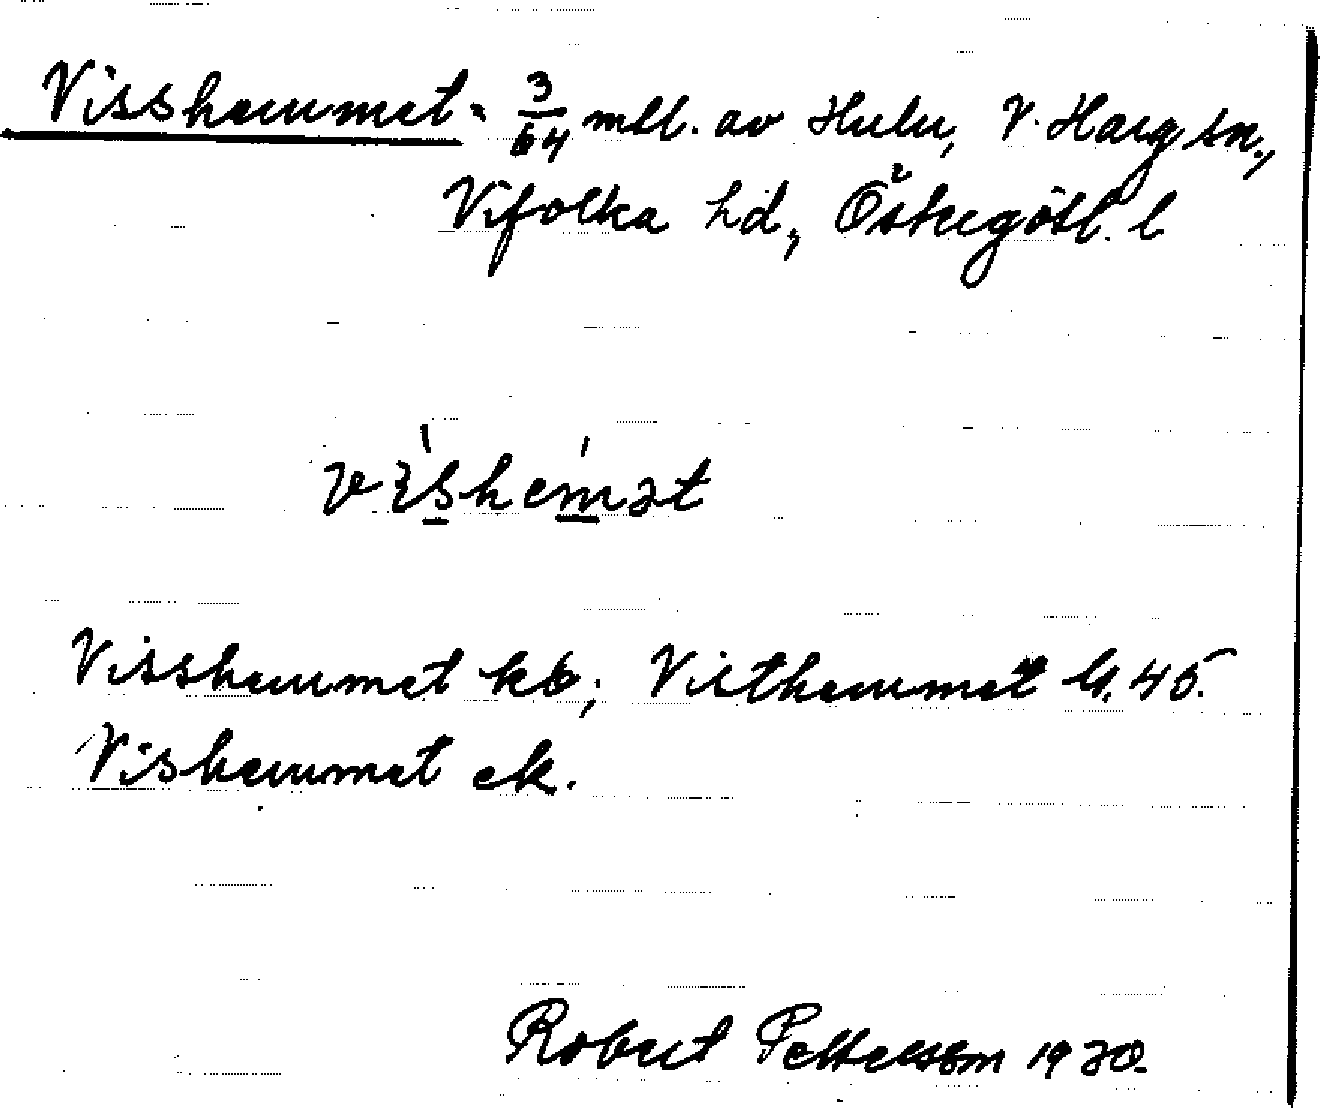 Visshemmet. 3/64 mtl. av Hulu, V. Harg sn.,
Vifolka hd, Östergötl. l
vìshémət
Visshemmet kb; Visthemmet G. 45.
Vishemmet ek.
Robert Pettersson 1930.